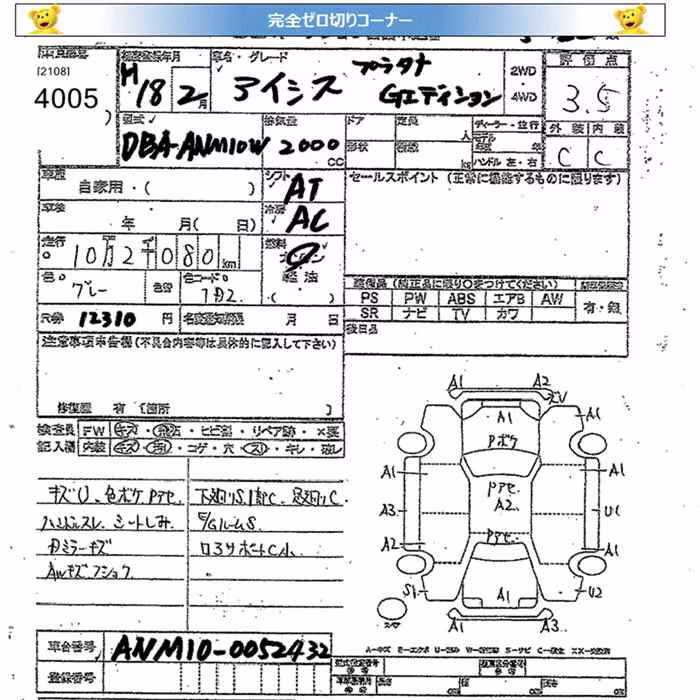 完全ゼロ切りコーナー
[2108]
4005
初度登録年月
車名・グレード
H 18 2月
アイシス プラタナ
Gエディション
2WD
4WD
評価点
3.5
型式
DBA-ANM10W
排気量
2000 CC
ドア
定員
人
形状
積載
kg
ディーラー・並行
モデル
年度 年
ハンドル 左・右
外装 内装
C C
車歴
自家用・( )
シフト
AT
セールスポイント (正常に機能するものに限ります)
車検
年 月( 日)
冷房
AC
走行
10万2千080 km
燃料
ガソリン
軽油
( )
色
グレー
色替
色コード
1D2
装備品 (純正品に限り○をつけてください)
PS PW ABS エアB AW
SR ナビ TV カワ
有・無
後日品
リ券 12310 円
名義変更期限 月 日
注意事項申告欄(不具合内容等は具体的に記入して下さい)
修復歴 有 [箇所 ]
検査員 FW キズ・飛石・ヒビ割・リペア跡・×要
記入欄 内装 キズ・コゲ・穴・スリ・キレ・破レ
キズU、色ボケ
ハンドルスレ、シートしみ
Dミラーキズ
AWキズ
E/GルームS
ロアサポートC小
A1 A2
A1 A1
A1
Pボケ
A1 A1
A2
A3 U1
A2 A1
S1 U2
A1
A1 A3
車台番号
ANM10-0052432
登録番号
型式指定番号
類別区分番号